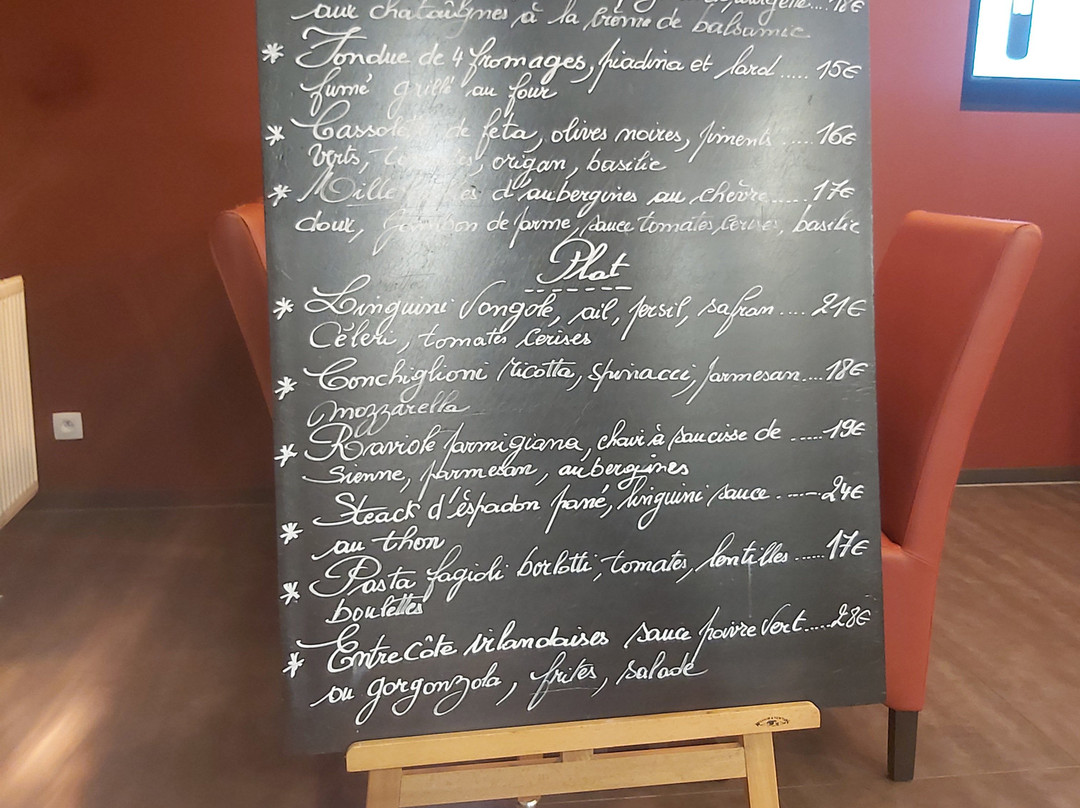 courgette.... 12€
aux chataîgnes à la crème de balsamic
* Fondue de 4 fromages, piadina et lard ..... 15€
fumé grillé au four
* Cassolette de feta, olives noires, piments ..... 16€
verts, tomates, origan, basilic
* Mille feuilles d'aubergines au chèvre ..... 17€
doux, jambon de parme, sauce tomates cerises, basilic
Plat
* Linguini Vongole, ail, persil, safran .... 21€
Céleri, tomates Cerises
* Conchiglioni ricotta, spinacci, parmesan.... 18€
mozzarella
* Raviole parmigiana, chair à saucisse de ...... 19€
Sienne, parmesan, aubergines
* Steack d'éspadon pané, linguini sauce ...... 24€
au thon
* Pasta fagioli borlotti, tomates, lentilles ...... 17€
boulettes
* EntreCôte irlandaises sauce poivre Vert..... 28€
ou gorgonzola, frites, salade